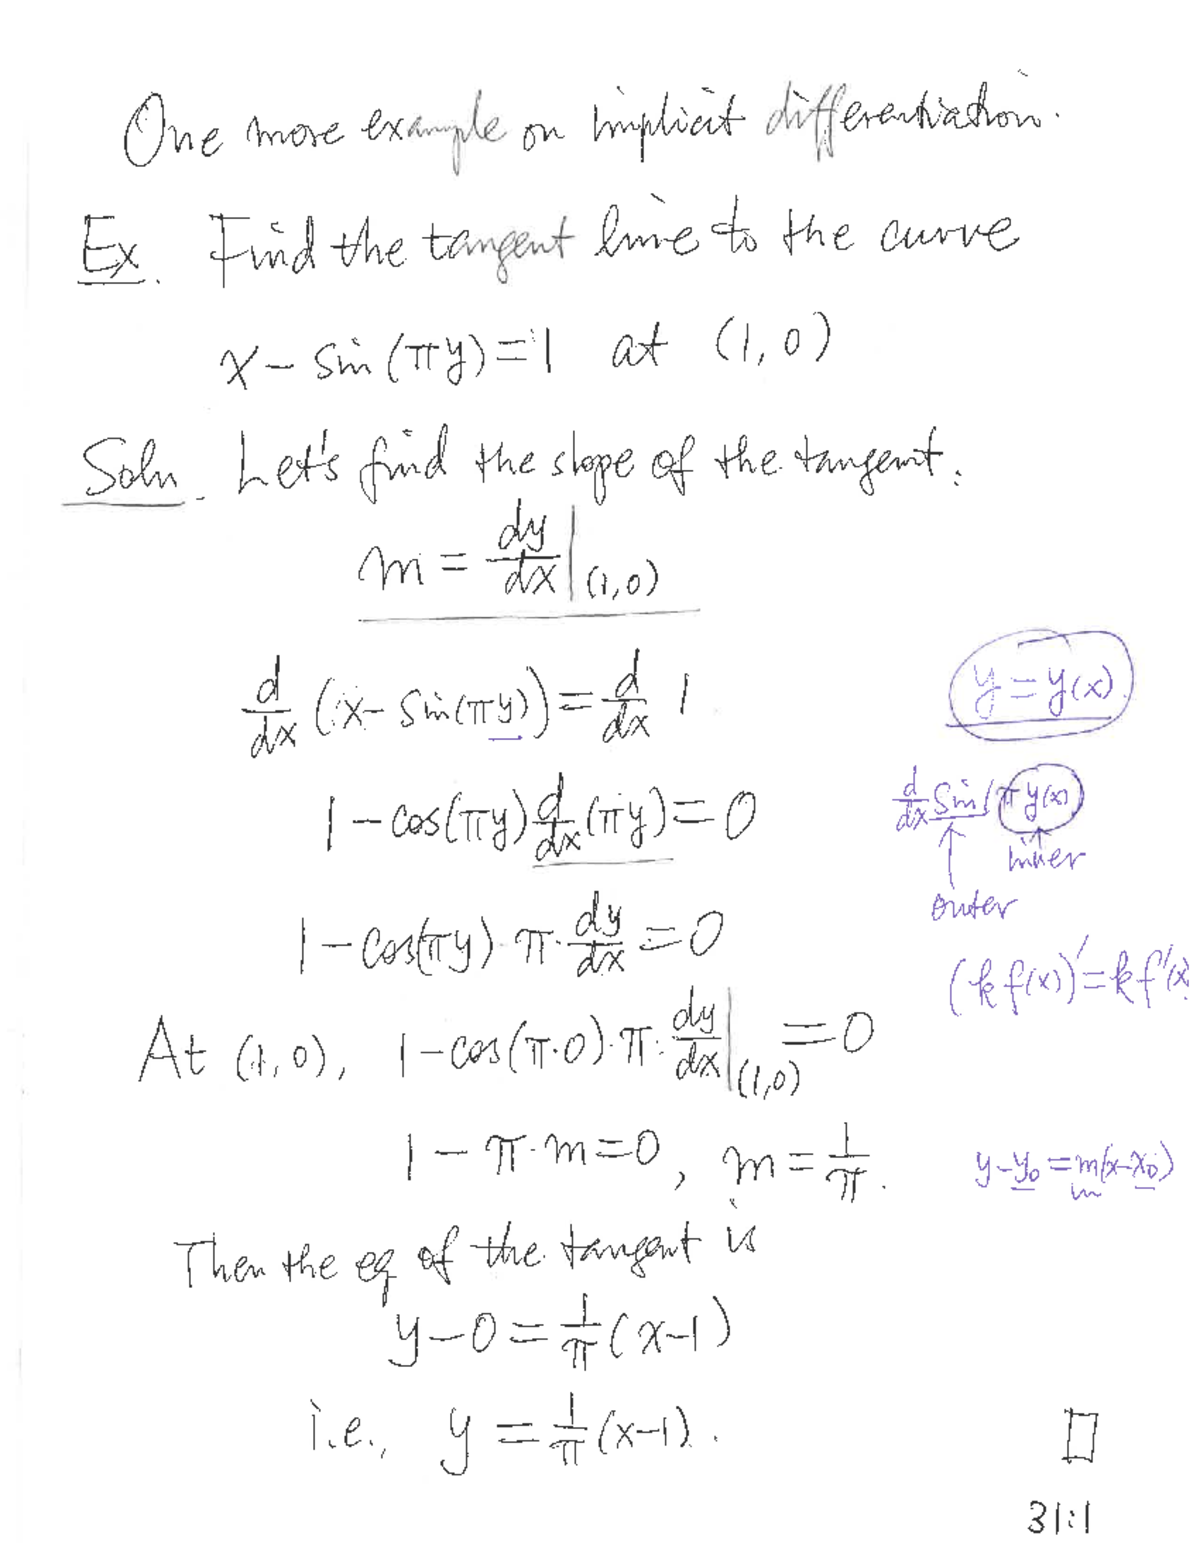 One more example on implicit differentiation.
Ex. Find the tangent line to the curve
x - sin(πy) = 1 at (1, 0)
Soln. Let's find the slope of the tangent.
m = dy/dx |(1,0)
d/dx (x - sin(πy)) = d/dx 1
y = y(x)
1 - cos(πy) d/dx (πy) = 0
d/dx sin(πy(x))
inner
outer
1 - cos(πy) · π · dy/dx = 0
(k f(x))' = k f'(x)
At (1, 0), 1 - cos(π·0) · π · dy/dx |(1,0) = 0
1 - π · m = 0, m = 1/π.
y - y₀ = m(x - x₀)
Then the eq of the tangent is
y - 0 = 1/π (x - 1)
i.e., y = 1/π (x - 1).
31:1